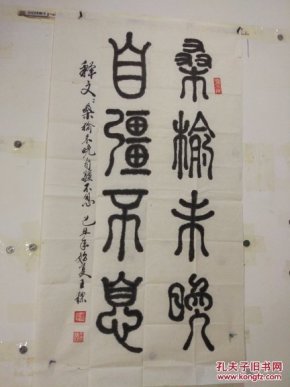 桑榆未晚
自彊不息
释文：桑榆未晚自强不息 己丑年始夏王
孔夫子旧书网